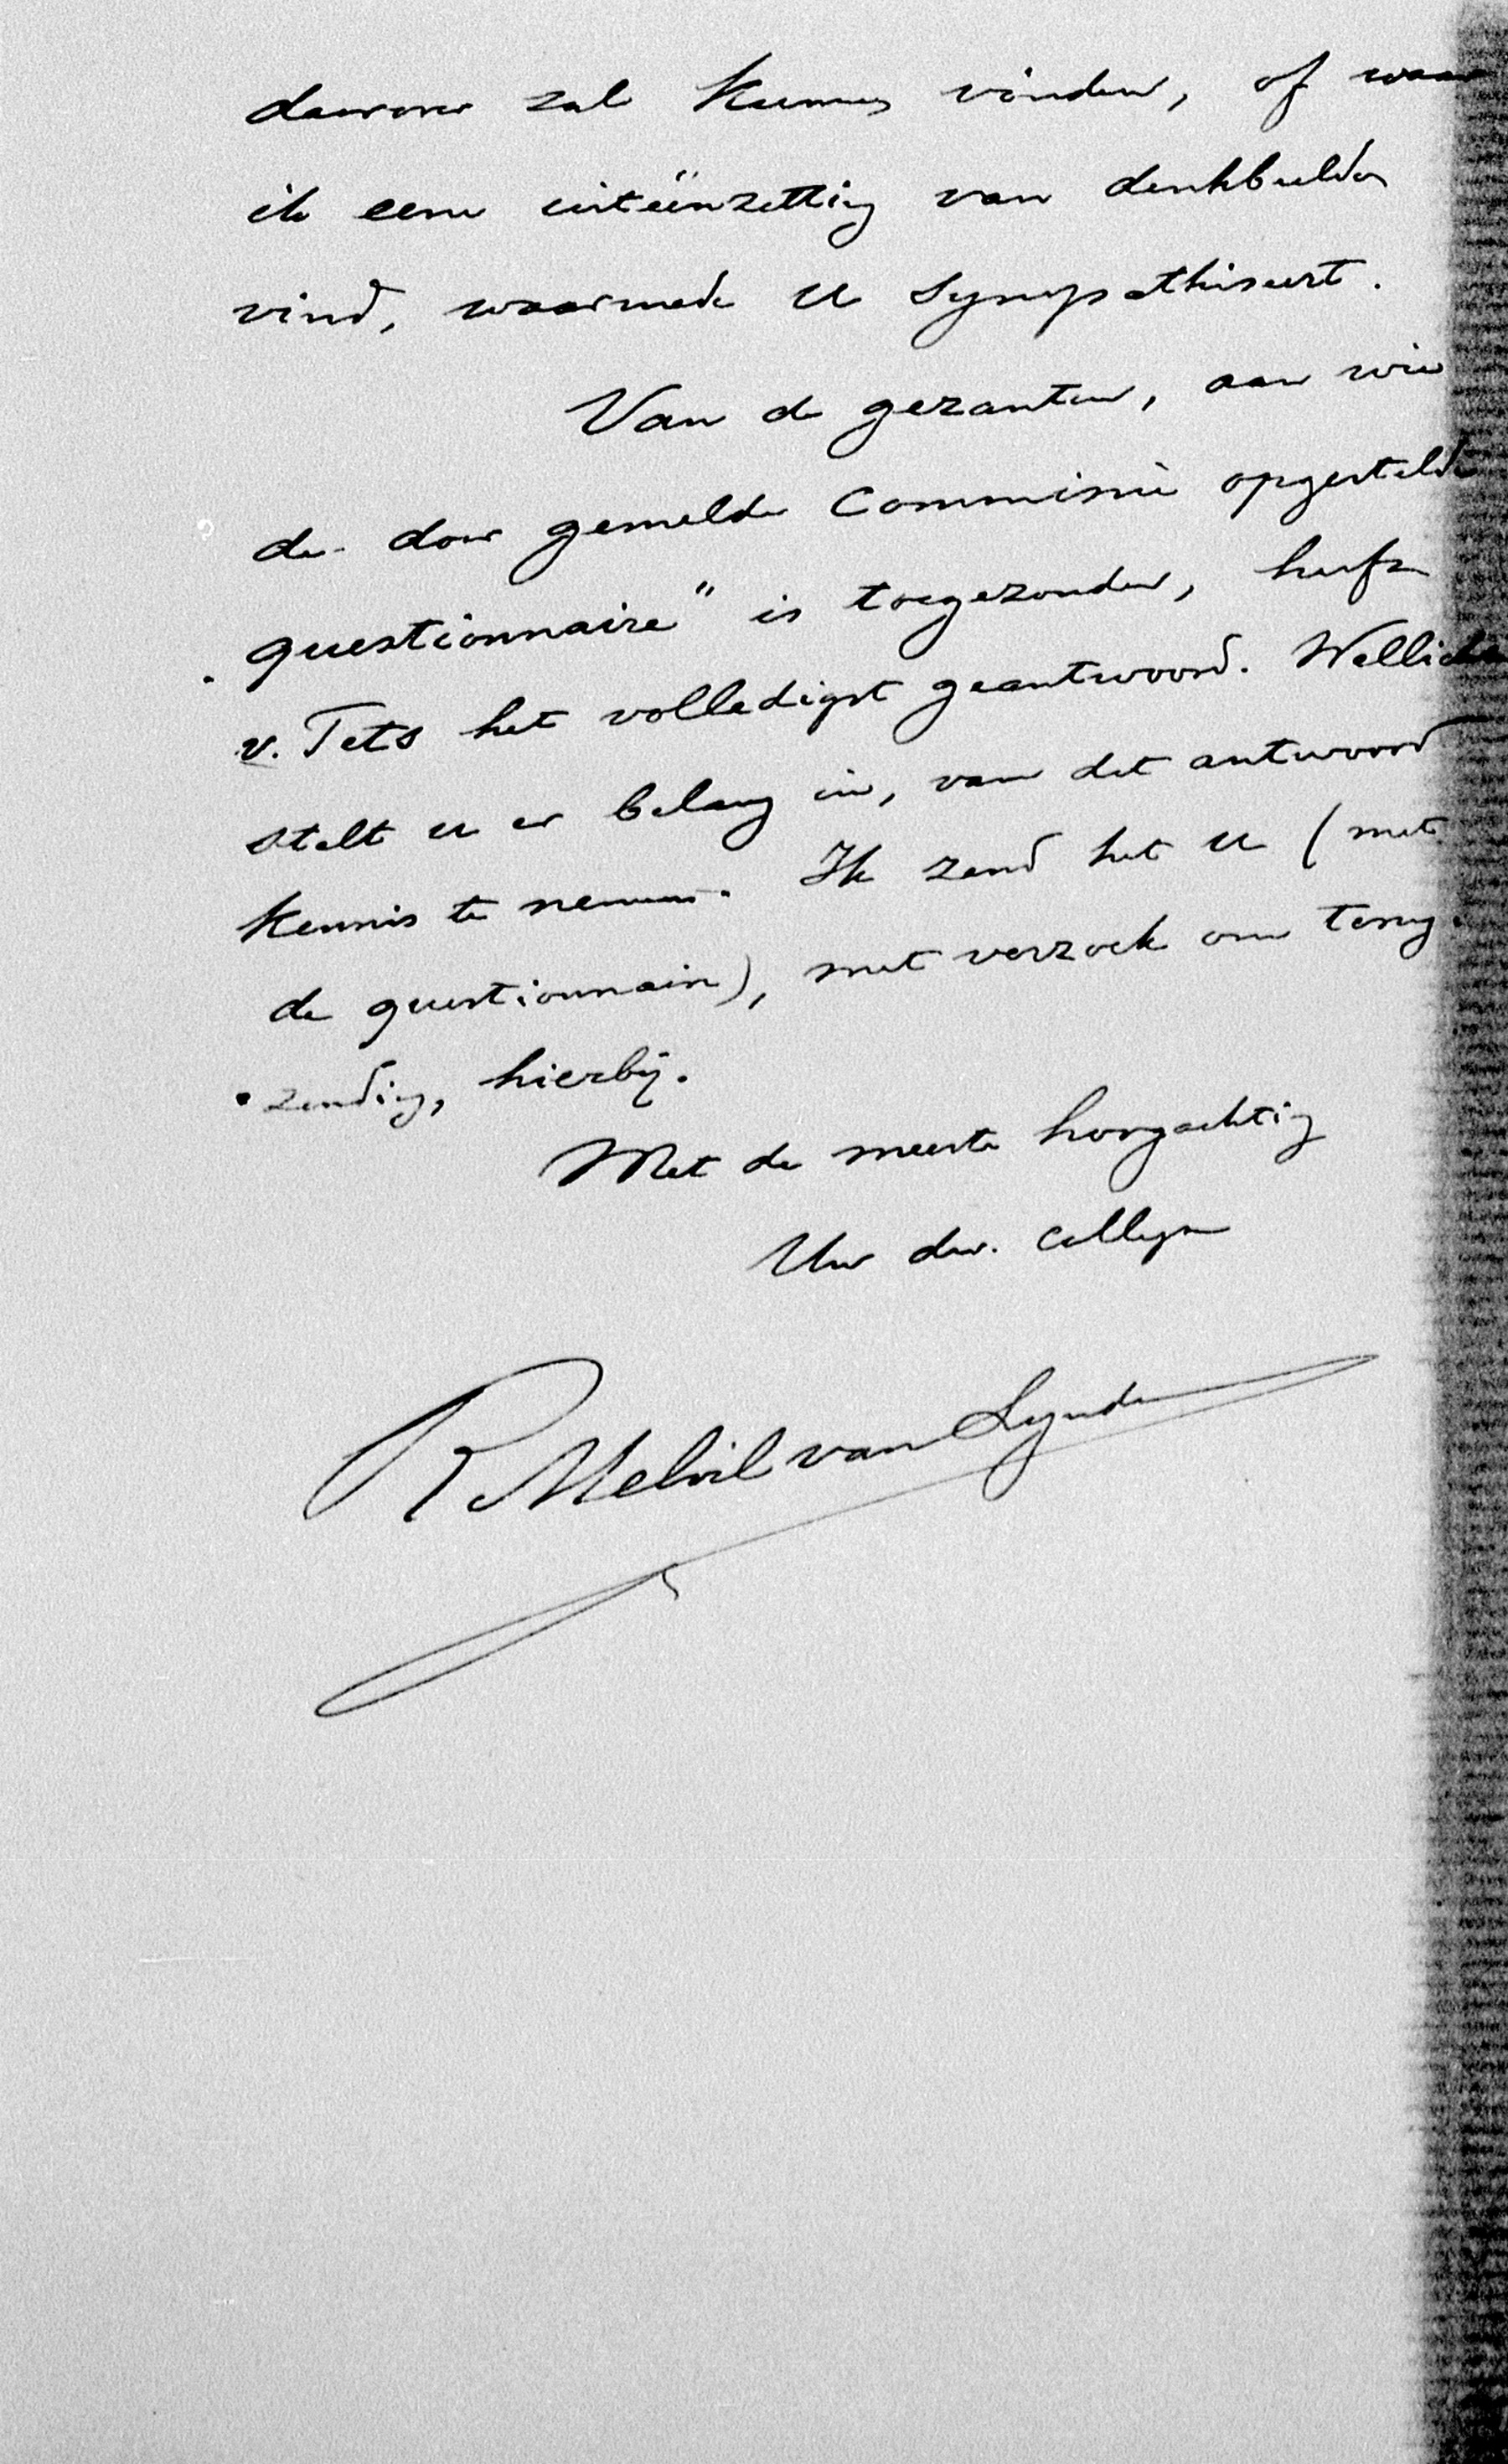 daarover zal kunnen vinden, of waar
ik eene uiteënzetting van denkbeelden
vind, waarmede u sympathiseert.
Van de gezanten, aan wie
de door gemelde Commissie opgestelde
questionnaire" is toegezonden, heeft
v. Tets het volledigst geantwoord. Wellicht
stelt u er belang in, van dit antwoord
kennis te nemen. Ik zend het u (met
de questionnaire), met verzoek om terug
zending, hierbij.
Met de meeste hoogachting
Uw dw. collega
R Melvil van Lynden